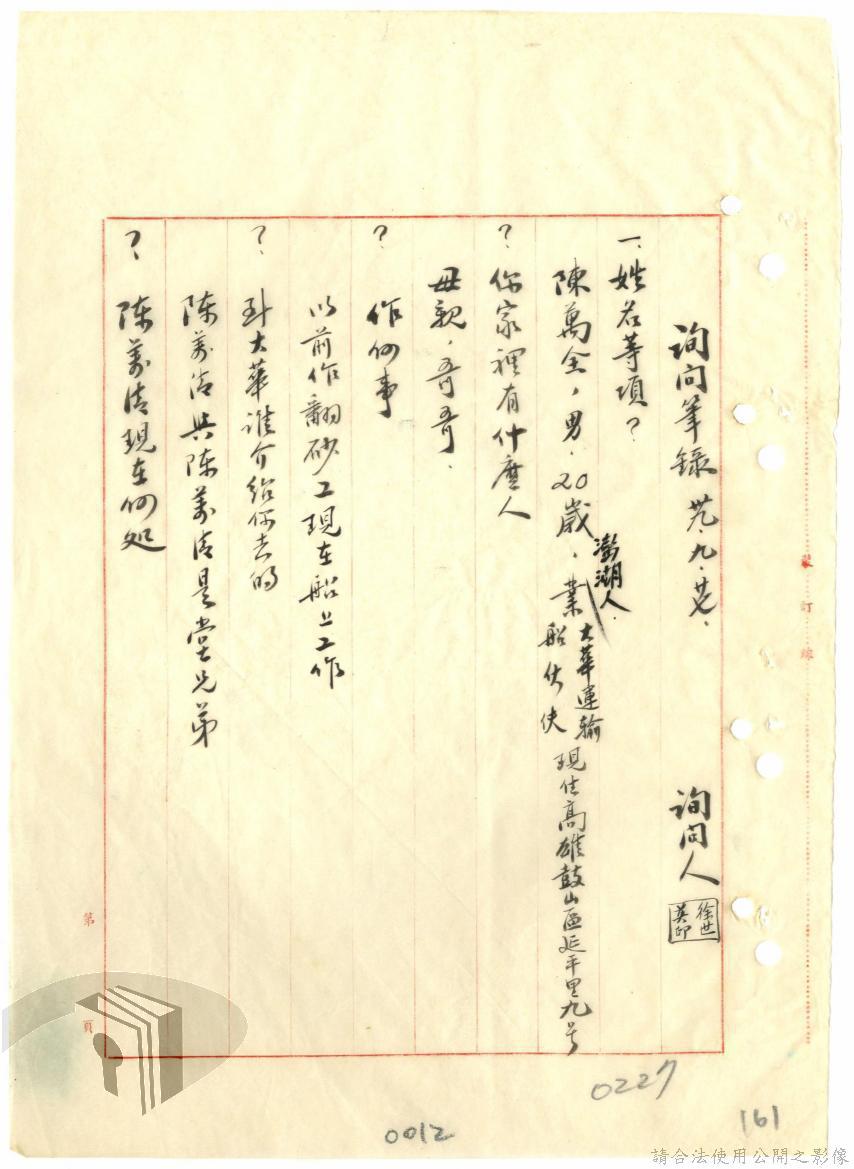 詢問筆錄 卅九.九.廿七. 詢問人 徐世英印
一、姓名等項?
陳萬全,男.20歲,澎湖人.業大華運輸船伙伕 現住高雄鼓山區延平里九号
? 你家裡有什麼人
母親,哥哥.
? 作何事
以前作翻砂工現在船上工作
? 到大華誰介紹你去的
陈萬清與陈萬清是堂兄弟
? 陈萬清現在何処
裝訂線
第 頁
0227
0012
161
請合法使用公開之影像